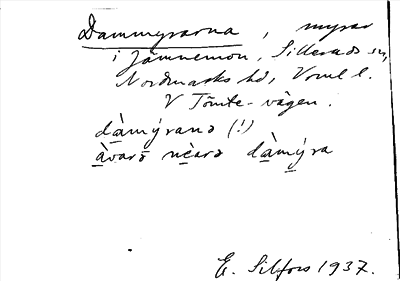 Dammyrarna, myrar
i Jämnemon, Silleruds sn,
Nordmarks hd, Vrml l.
V Tömte-vägen.
dàmýrană (!)
àvară nèară dàmýra
E. Silfors 1937.